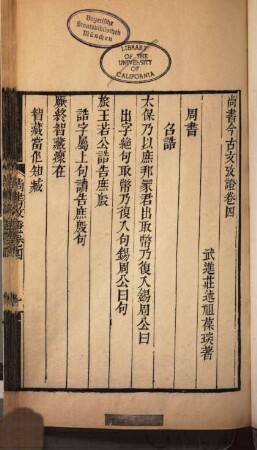 Bayerische
Staatsbibliothek
München
LIBRARY
OF THE
UNIVERSITY
OF
CALIFORNIA
尚書今古文攷證卷四
武進莊述祖葆琛著
周書
召誥
太保乃以庶邦冡君出取幣乃復入錫周公曰
出字絶句取幣乃復入句錫周公曰句
旅王若公誥告庶殷
誥字屬上句讀告庶殷句
厥終智藏瘝在
智藏當作知臧